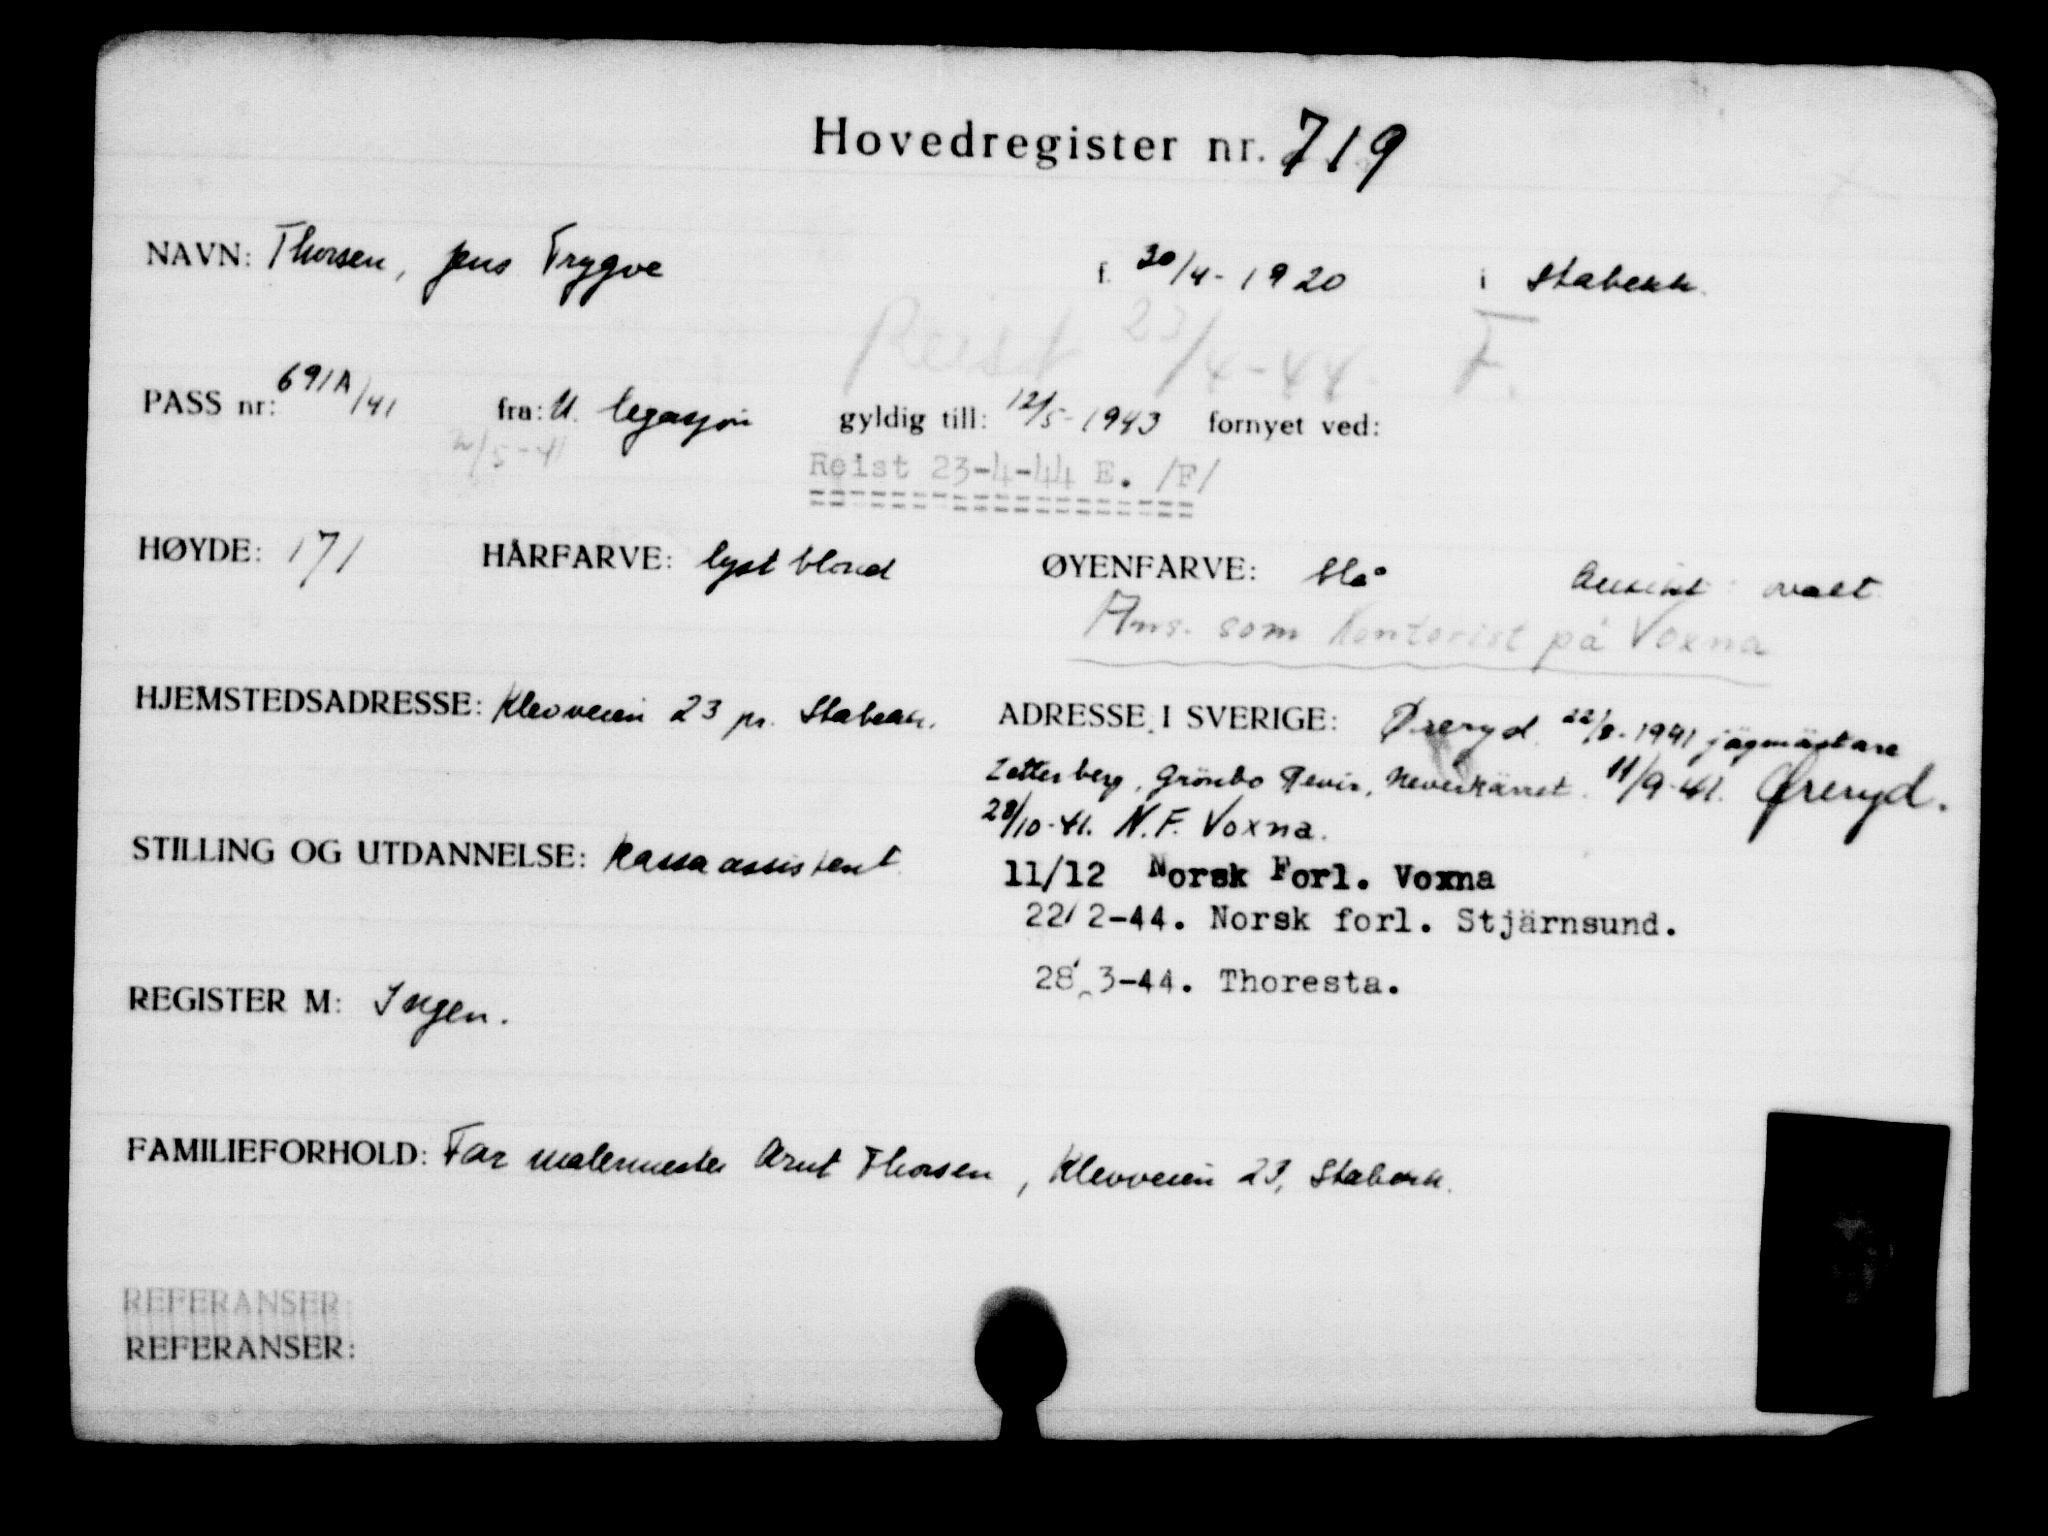 Hovedregister nr. 719
NAVN: Thorsen, Jens Trygve f. 30/4-1920 i Stabekk.
Reist 23/4-44. F.
PASS nr: 691A/41 fra: U. legasjon gyldig till: 12/5-1943 fornyet ved:
2/5-41
Reist 23-4-44 E. /F/
HØYDE: 171 HÅRFARVE: lyst blond ØYENFARVE: blå Ansikt: ovalt
Ans. som Kontorist på Voxna
HJEMSTEDSADRESSE: Klevveien 23 pr. Stabekk. ADRESSE I SVERIGE: Øreryd. 22/8-1941 jägmästare
Zetterberg, Grönbo Revir, Neverkärret. 11/9-41. Øreryd.
28/10-41. N.F. Voxna.
STILLING OG UTDANNELSE: kassaassistent.
11/12 Norsk Forl. Voxna
22/2-44. Norsk forl. Stjärnsund.
28/3-44. Thoresta.
REGISTER M: Ingen.
FAMILIEFORHOLD: Far malermester Arnt Thorsen, Klevveien 23, Stabekk.
REFERANSER:
REFERANSER: